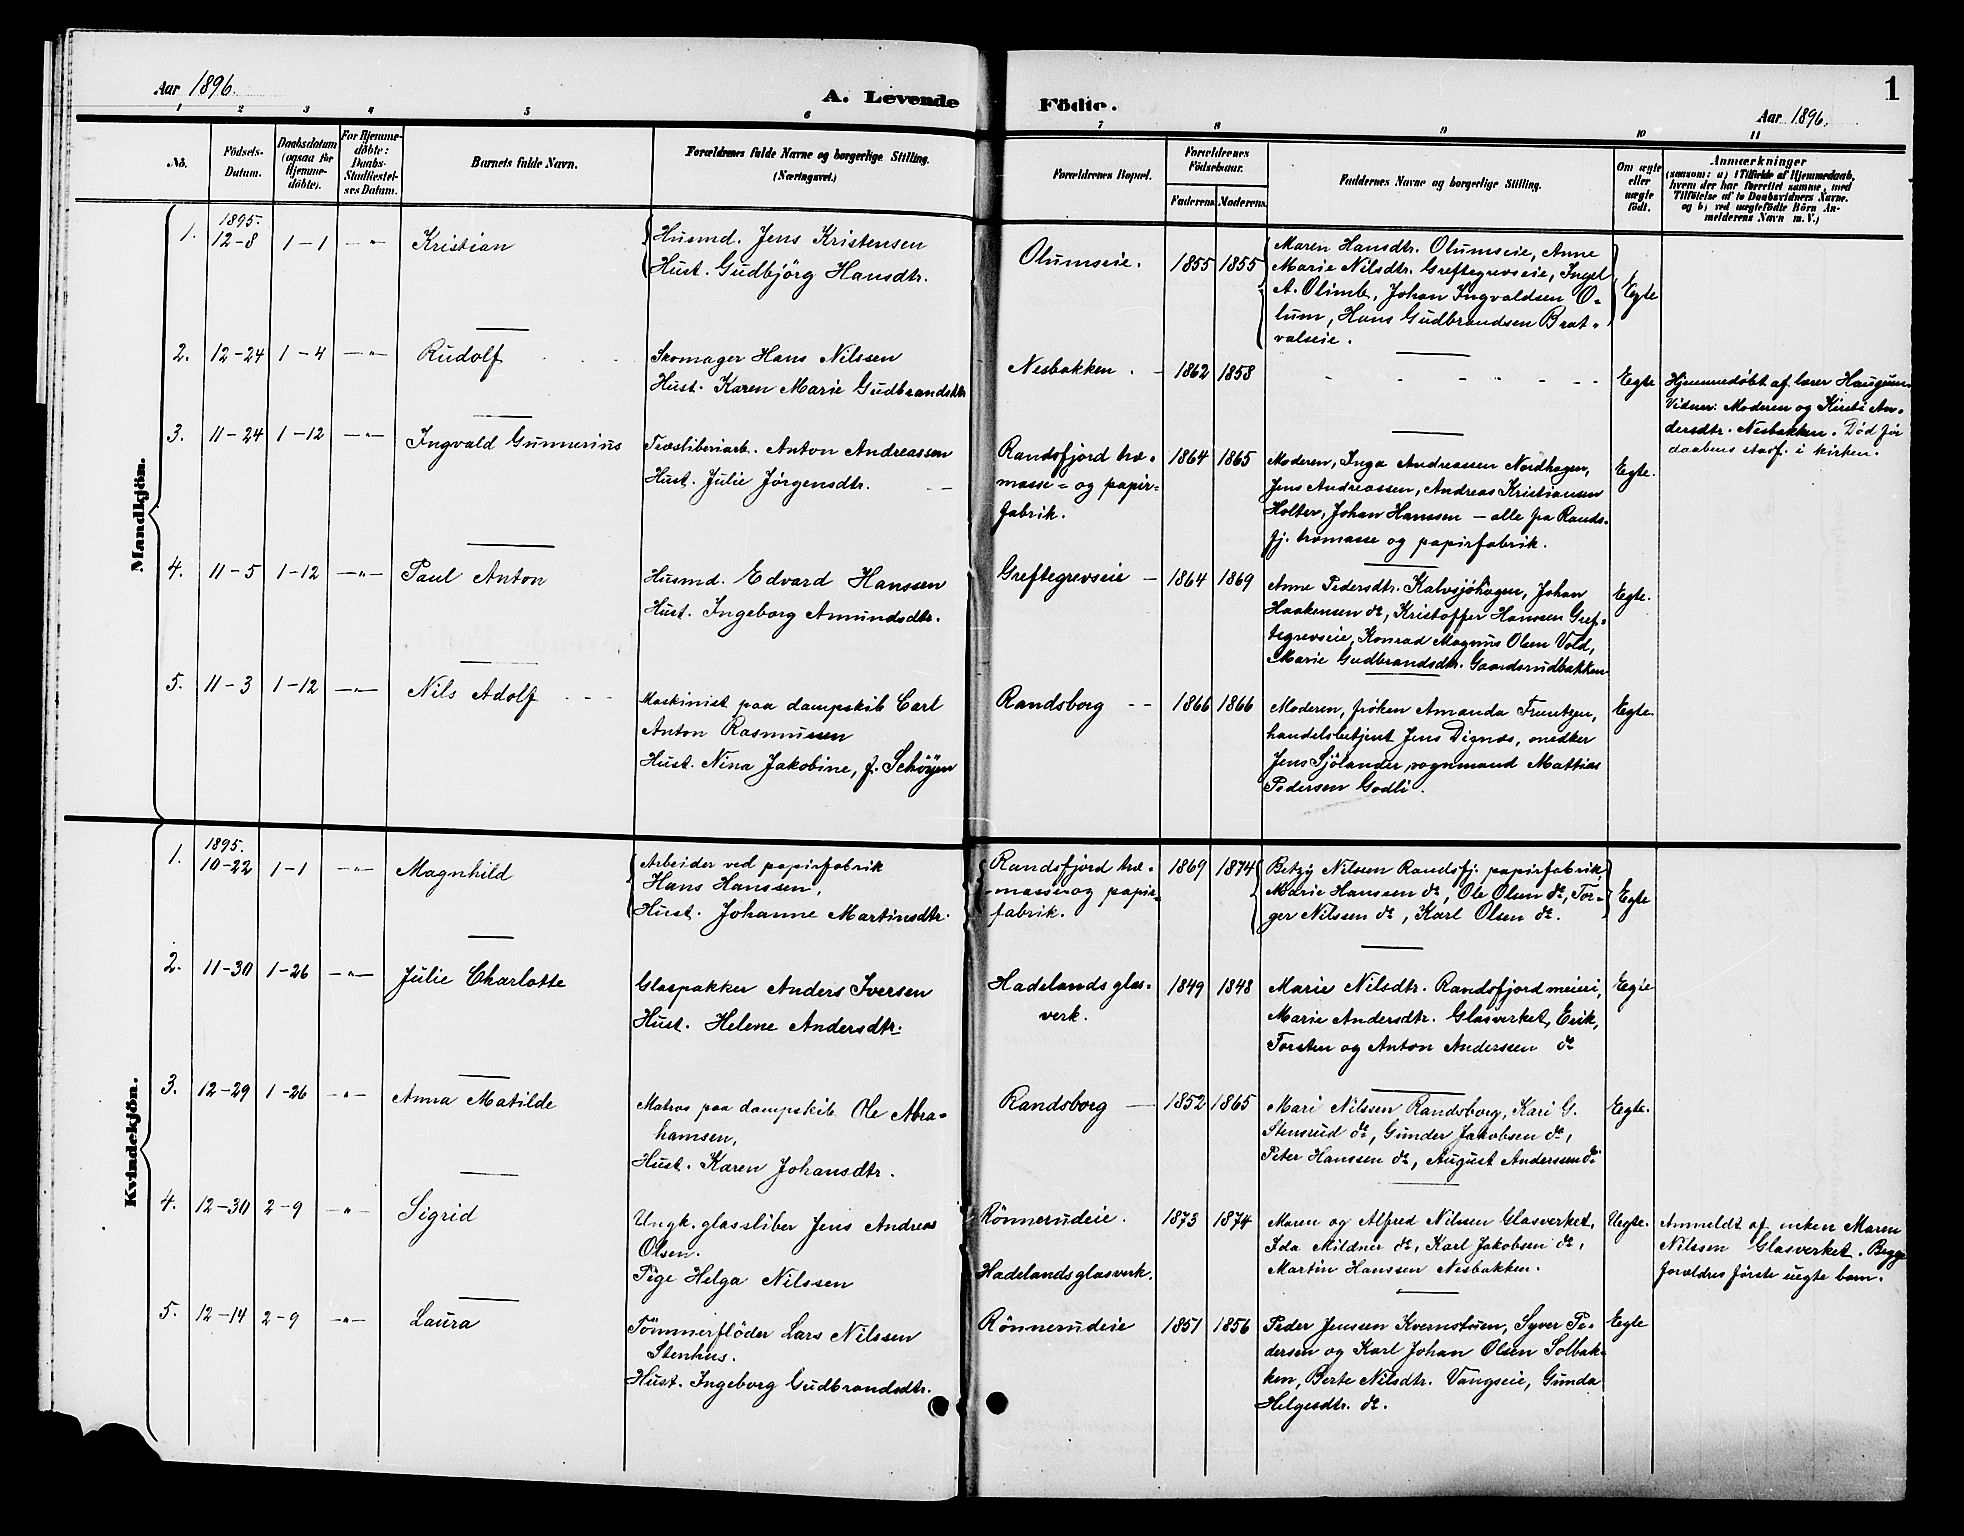 Aar 1896.
A. Levende Födte.
Aar 1896.
1
1 2 3 4 5 6 7 8 9 10 11
No.
Födsels-
Datum.
Daabsdatum
(ogsaa for
Hjemme-
döbte).
For Hjemme-
döbte:
Daabs-
Stadfæstel-
ses Datum.
Barnets fulde Navn.
Forældrenes fulde Navne og borgerlige Stilling.
(Næringsvei.)
Forældrenes Bopæl.
Forældrenes
Födselsaar.
Faderens. Moderens.
Faddernes Navne og borgerlige Stilling.
Om ægte
eller
uægte
födt.
Anmærkninger
(saasom: a) i Tilfælde af Hjemmedaab,
hvem der har forrettet samme, med
Tilföielse af to Daabsvidners Navne.
og b) ved uægtefödte Börn An-
melderens Navn m. V.)
Mandkjön.
1.
1895.
12-8
1-1
—„—
Kristian
Husmd. Jens Kristensen
Hust. Gudbjörg Hansdtr.
Olumseie.
1855 1855
Maren Hansdtr. Olumseie, Anne
Marie Nilsdtr. Greftegrevseie, Ingel
A. Olimb, Johan Ingvaldsen O-
lum, Hans Gudbrandsen Brat-
valseie.
Egte
2. 12-24 1-4 —„—
Rudolf
Skomager Hans Nilssen
Hust. Karen Marie Gudbrandsdtr
Nesbakken.
1862 1858
Egte
Hjemmedøbt af lærer Haugum.
Vidner: Moderen og Kirsti An-
dersdtr. Nesbakken. Død før
daabens stadf. i kirken.
3. 11-24 1-12 —„—
Ingvald Gunnerius
Træsliberiarb. Anton Andreassen
Hust. Julie Jörgensdtr.
Randsfjord træ-
masse- og papir-
fabrik.
1864 1865
Moderen, Inga Andreassen Nordhagen,
Jens Andreassen, Andreas Kristiansen
Holter, Johan Hanssen — alle fra Rands-
fj. træmasse og papirfabrik.
Egte.
4. 11-5 1-12 —„—
Paul Anton
Husmd. Edvard Hanssen
Hust. Ingeborg Amundsdtr.
Greftegrevseie
1864 1869
Anne Pedersdtr. Kalvsjöhagen, Johan
Haakensen do, Kristoffer Hanssen Gref-
tegrevseie, Konrad Magnus Olsen Vold,
Marie Gudbrandsdtr. Gaardsrudbakken
Egte.
5. 11-3 1-12 —„—
Nils Adolf
Maskinist paa dampskib Carl
Anton Rasmussen
Hust. Nina Jakobine, f. Schöyen
Randsborg
1866 1866
Moderen, frøken Amanda Frantzen,
handelsbetjent Jens Dignæs, snedker
Jens Sjölander, vognmand Mattias
Pedersen Godli.
Egte.
Kvindekjön.
1.
1895.
10-22
1-1
—„—
Magnhild
Arbeider ved papirfabrik
Hans Hanssen,
Hust. Johanne Martinsdtr.
Randsfjord træ-
masse- og papir-
fabrik.
1869 1874
Betzy Nilssen Randsfj. papirfabrik,
Marie Hanssen do, Ole Olsen do, Tor-
ger Nilssen do, Karl Olsen do.
Egte
2. 11-30 1-26 —„—
Julie Charlotte
Glaspakker Anders Iversen
Hust. Helene Andersdtr.
Hadelands glas-
verk.
1849 1848
Marie Nilsdtr. Randsfjord meieri,
Marie Andersdtr. Glasverket, Erik,
Torsten og Anton Anderssen do
Egte
3. 12-29 1-26 —„—
Anna Matilde
Matros paa dampskib Ole Abra-
hamsen,
Hust. Karen Johansdtr.
Randsborg
1852 1865
Mari Nilssen Randsborg, Kari G.
Stensrud do, Gunder Jakobsen do,
Peter Hanssen do, August Anderssen do
Egte.
4. 12-30 2-9 —„—
Sigrid
Ungk. glassliber Jens Andreas
Olsen.
Pige Helga Nilssen
Rönnerudeie.
Hadelandsglasverk.
1873 1874
Maren og Alfred Nilsen Glasverket,
Ida Mildner do, Karl Jakobsen do,
Martin Hanssen Nesbakken.
Uegte.
Anmeldt af enken Maren
Nilssen Glasverket. Begge
forældres første uegte barn.
5. 12-14 2-9 —„—
Laura
Tömmerflöder Lars Nilssen
Stenhus.
Hust. Ingeborg Gudbrandsdtr.
Rönnerudeie
1851 1856
Peder Jenssen Kvernstuen, Syver Pe-
dersen og Karl Johan Olsen Solbak-
ken, Berte Nilsdtr. Vangseie, Gunda
Helgesdtr. do.
Egte